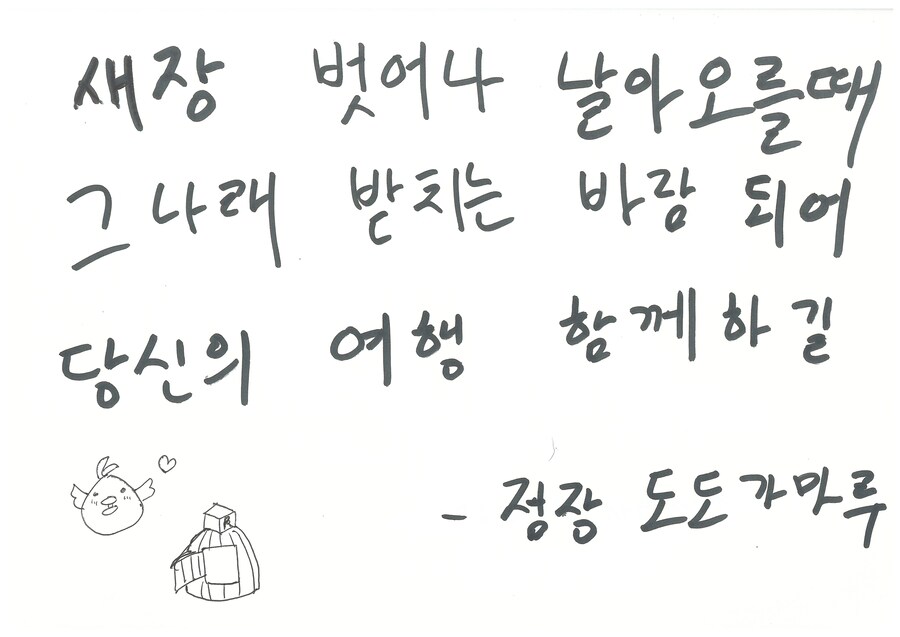 새장 벗어나 날아오를때
그 나래 받치는 바람 되어
당신의 여행 함께하길
- 정장 도도가마루
R